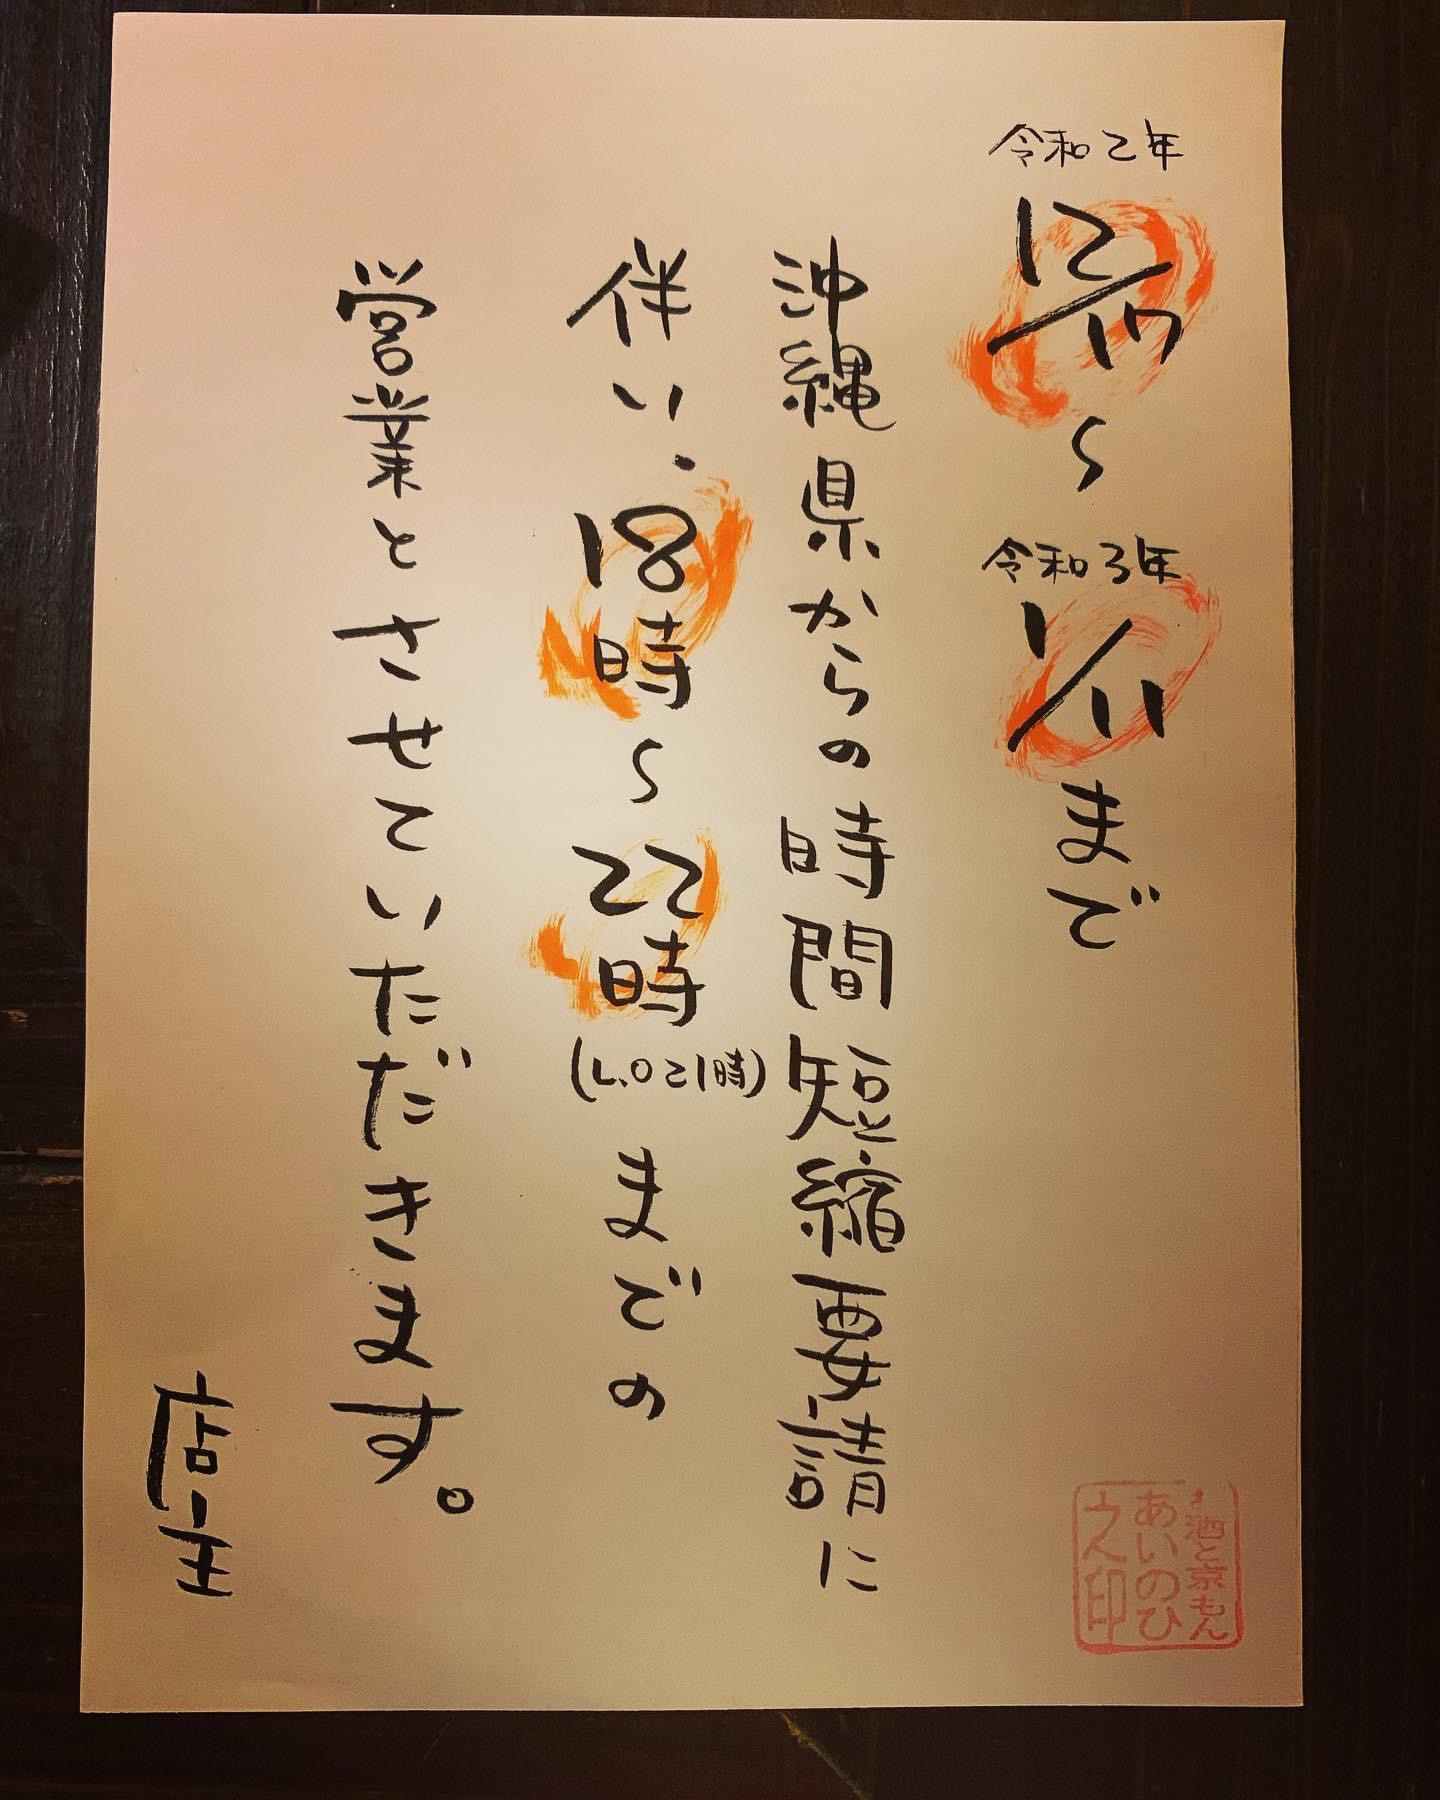 令和2年
12/17〜
令和3年
1/11まで
沖縄県からの時間短縮要請に
伴い、18時〜22時(L.O21時)までの
営業とさせていただきます。
店主
酒と京もん
あいのひ
印